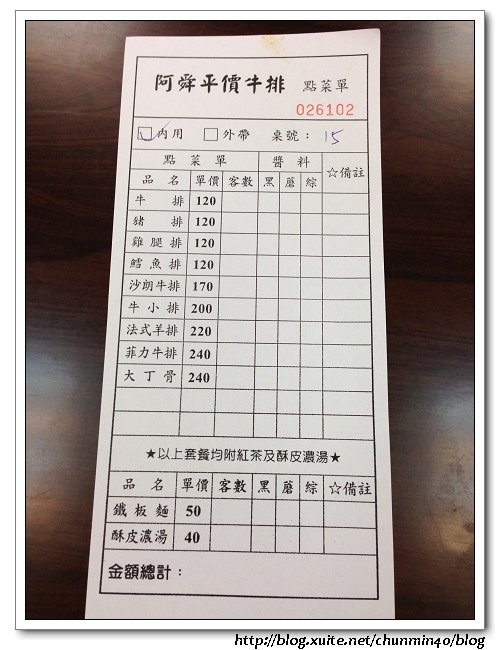 阿舜平價牛排 點菜單
026102
內用 外帶 桌號： 15
點菜單 醬料 ☆備註
品名 單價 客數 黑 蘑 綜
牛排 120
豬排 120
雞腿排 120
鱈魚排 120
沙朗牛排 170
牛小排 200
法式羊排 220
菲力牛排 240
大丁骨 240
★以上套餐均附紅茶及酥皮濃湯★
品名 單價 客數 黑 蘑 綜 ☆備註
鐵板麵 50
酥皮濃湯 40
金額總計：
http://blog.xuite.net/chunmin40/blog